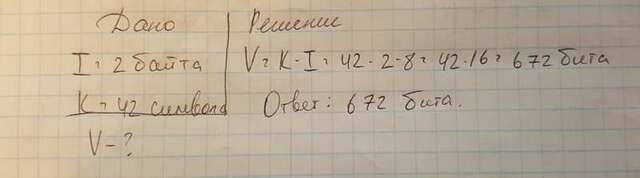 Дано
I = 2 байта
K = 42 символа
V - ?
Решение
V = K · I = 42 · 2 · 8 = 42 · 16 = 672 бита
Ответ: 672 бита.